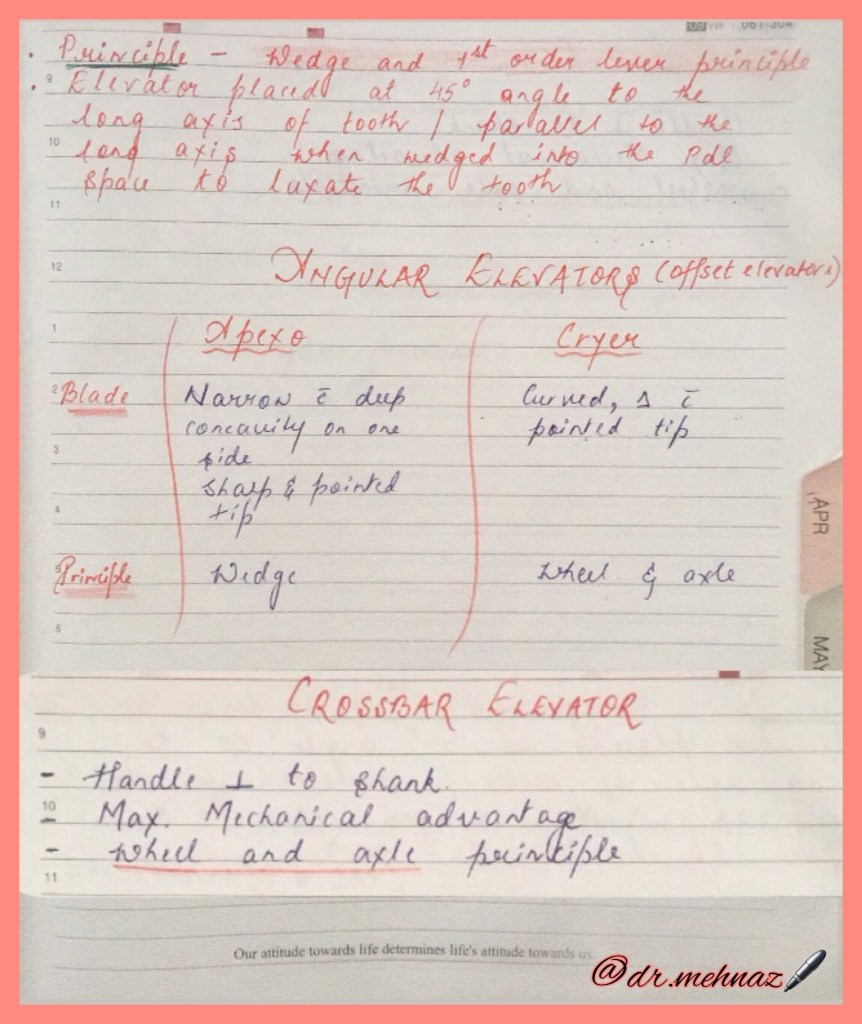 • Principle - Wedge and 1st order lever principle
9
• Elevator placed at 45° angle to the
long axis of tooth / parallel to the
10
long axis when wedged into the Pdl
space to luxate the tooth
11
12
ANGULAR ELEVATORS (offset elevators)
1
Apexo Cryer
2
Blade Narrow c̄ deep Curved, Δ c̄
concavity on one pointed tip
3
side
sharp & pointed
4
tip
5
Principle Wedge Wheel & axle
6
APR
MAY
CROSSBAR ELEVATOR
9
- Handle ⊥ to shank.
10
- Max. Mechanical advantage
- Wheel and axle principle
11
Our attitude towards life determines life's attitude towards us.
@dr.mehnaz